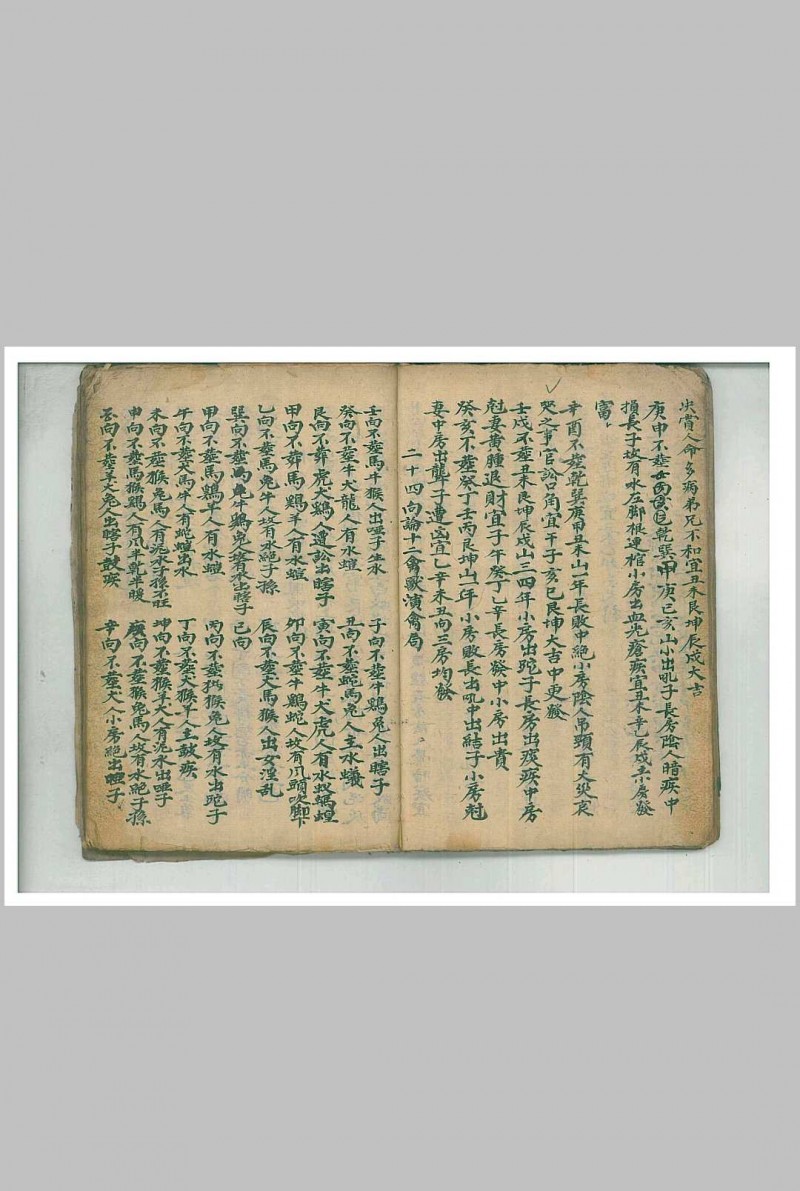 央賞人命多病弟兄不和宜丑未艮坤辰戍大吉
庚申不塟 乾巽甲庚巳亥山小出 子長房陰人暗疾中
損長子坟有水左脚根連棺小房出血光瘡疾宜丑未辛乙辰戍 小房發
富
辛酉不塟乾巽庚甲丑未山一年長敗中絕小房陰人吊頸有大災哀
哭之事官訟口角宜午子亥巳艮坤大吉中更發
壬戍不塟丑未艮坤辰戍山三四年小房出跎子長房出痰疾中房
尅妻黄腫退財宜子午癸丁乙辛長房發中小房出貴
癸亥不塟癸丁壬丙艮坤山一年小房敗長出 中出結子小房尅
妻中房出聾子遭凶宜乙辛未丑向三房均發
二十四向論十二禽獸演禽局
壬向不塟馬牛猴人出啞子生水
子向不塟牛鷄兔人出瞎子
癸向不塟牛犬龍人有水蟻
丑向不塟蛇馬兔人主水蟻
艮向不葬虎犬鷄人遭訟出瞎子
寅向不塟牛犬虎人有水蟻
甲向不葬馬鷄羊人有水蟻
卯向不塟牛鷄蛇人坟有風頭吹脚下
乙向不塟馬兔牛人坟有水絕子孫
辰向不塟犬馬猴人出女淫乱
巽向不塟馬牛鷄兔 有水出瞎子
巳向
甲向不塟馬鷄羊人有水蟻
丙向不塟 猴兔人坟有水出跎子
午向不塟犬馬牛人有蛇蟻出水
丁向不塟犬猴羊人主鼓疾
未向不塟猴兔馬人有泥水子孫不旺
坤向不塟猴羊犬人有泥水出啞子
申向不塟馬猴鷄人有風半乾半暖
庚向不塟猴兔馬人坟有水絕子孫
酉向不塟羊犬兔人出瞎子鼓疾
辛向不塟犬人小房絕出啞子